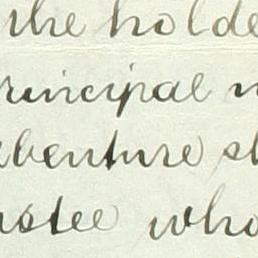 the holde
rincipal
benture sh
ustee who